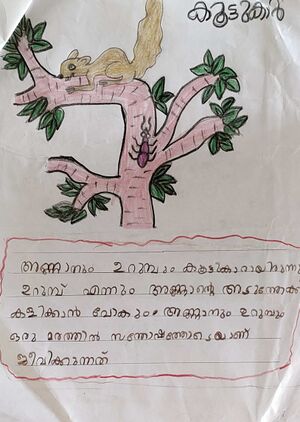 കൂട്ടുകാർ
അണ്ണാനും ഉറുമ്പും കൂട്ടുകാരായിരുന്നു
ഉറുമ്പ് എന്നും അണ്ണാന്റെ അടുത്തേക്ക്
കളിക്കാൻ പോകും അണ്ണാനും ഉറുമ്പും
ഒരു മരത്തിൽ സന്തോഷത്തോടെയാണ്
ജീവിക്കുന്നത്